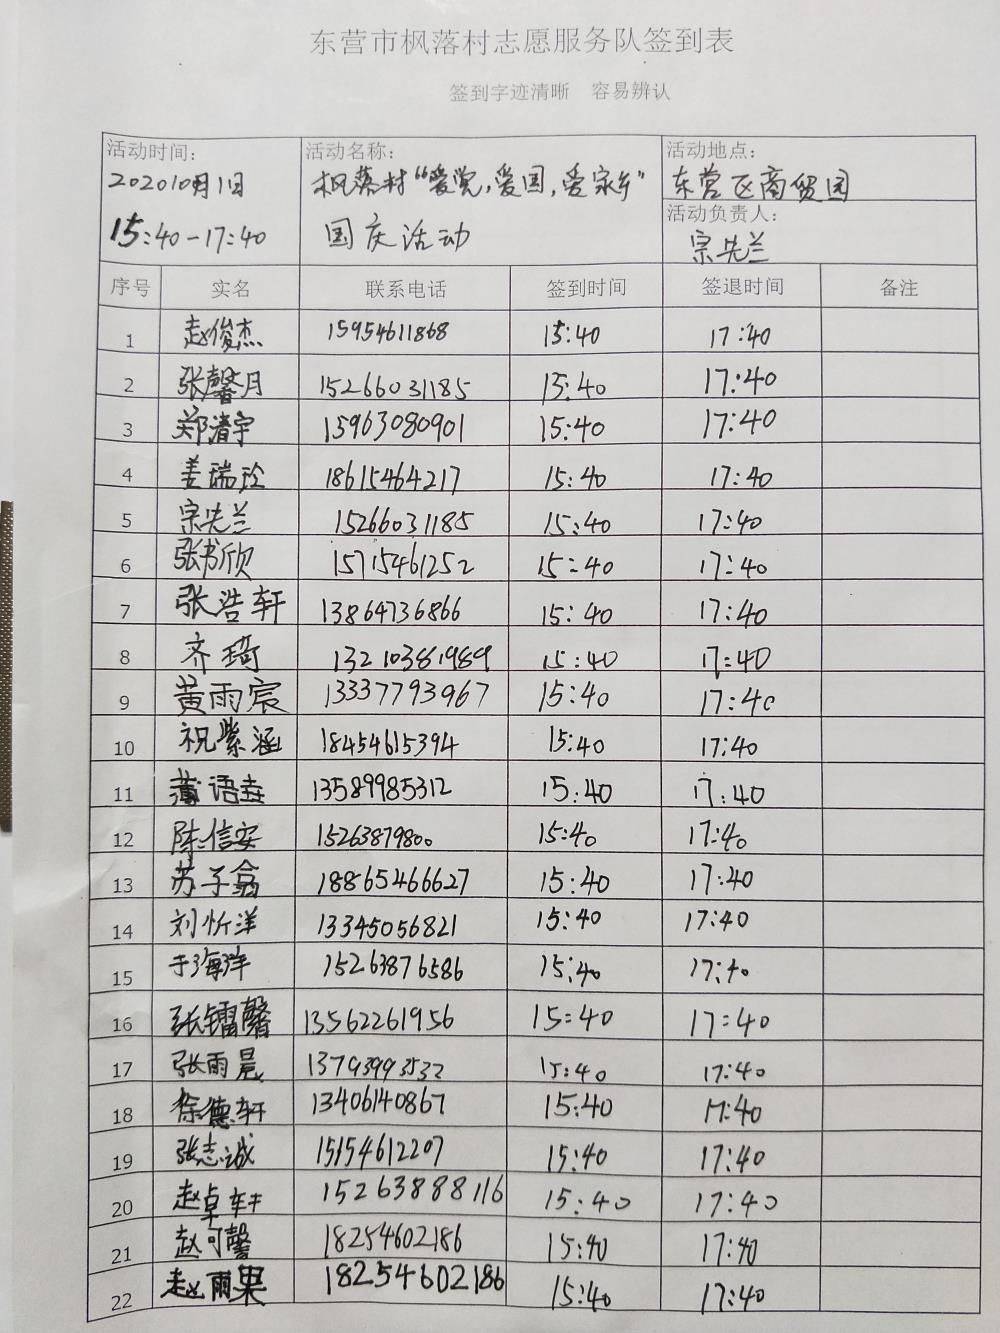 东营市枫落村志愿服务队签到表
签到字迹清晰 容易辨认
活动时间: 活动名称: 活动地点:
202010月1日 枫落村"爱党,爱国,爱家乡" 东营区商贸园
15:40-17:40 国庆活动 活动负责人:
宗先兰
序号 实名 联系电话 签到时间 签退时间 备注
1 赵俊杰 15954611868 15:40 17:40
2 张馨月 15266031185 15:40 17:40
3 郑清宇 15963080901 15:40 17:40
4 姜瑞玲 18615464217 15:40 17:40
5 宗先兰 15266031185 15:40 17:40
6 张书欣 15715461252 15:40 17:40
7 张浩轩 13864736866 15:40 17:40
8 齐琦 13210381989 15:40 17:40
9 黄雨宸 13337793967 15:40 17:40
10 祝紫涵 18454615394 15:40 17:40
11 语 13589985312 15:40 17:40
12 陈信安 15263879800 15:40 17:40
13 苏子翕 18865466627 15:40 17:40
14 刘忻洋 13345056821 15:40 17:40
15 于海洋 15263876586 15:40 17:40
16 张镭馨 13562261956 15:40 17:40
17 张雨晨 13793993532 15:40 17:40
18 徐德轩 13406140867 15:40 17:40
19 张志诚 15154612207 15:40 17:40
20 赵卓轩 15263888116 15:40 17:40
21 赵可馨 18254602186 15:40 17:40
22 赵雨果 18254602186 15:40 17:40